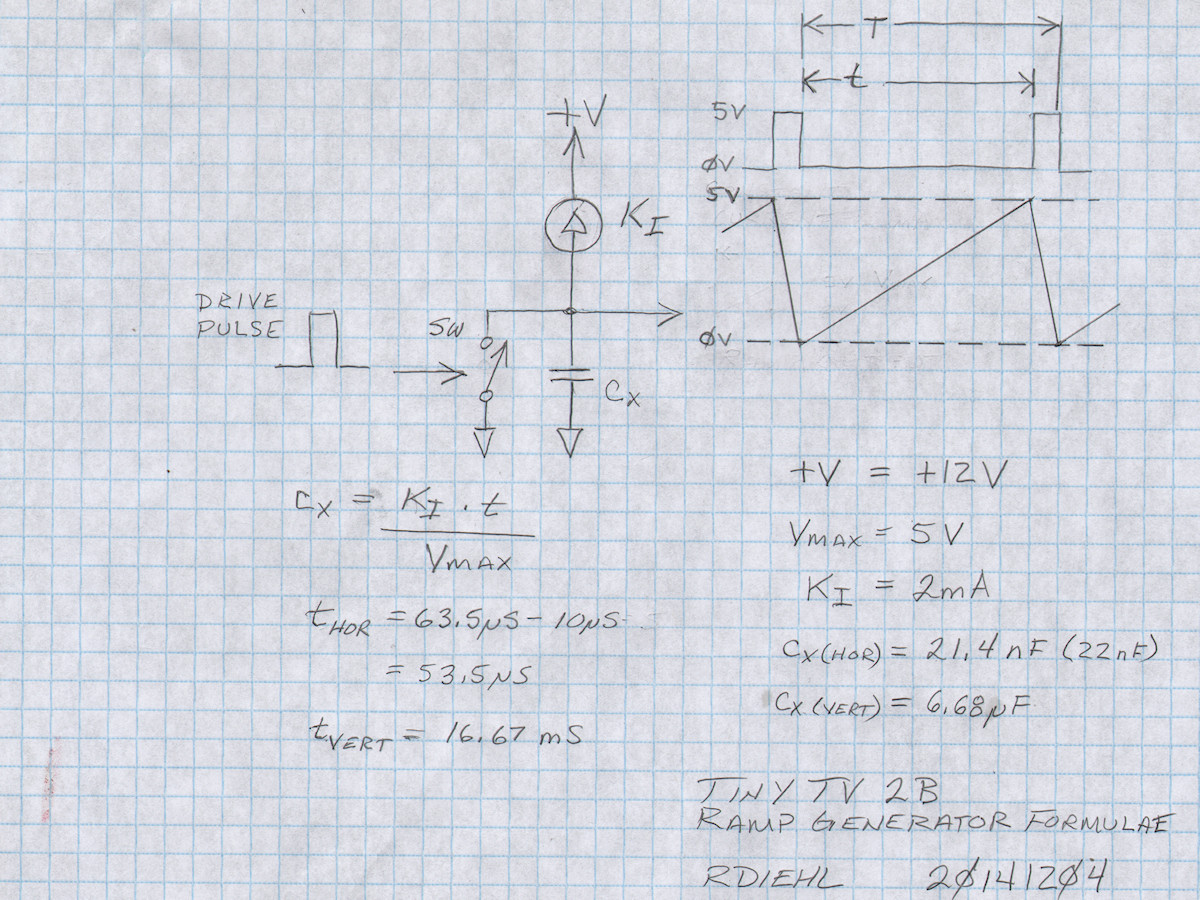 T
t
5V
ØV
5V
ØV
+V
K_I
DRIVE
PULSE
SW
C_X
C_X = K_I · t
V_MAX
t_HOR = 63.5µS - 10µS
= 53.5µS
t_VERT = 16.67 mS
+V = +12V
V_MAX = 5V
K_I = 2mA
C_X(HOR) = 21.4 nF (22nF)
C_X(VERT) = 6.68µF
TINY TV 2B
RAMP GENERATOR FORMULAE
RDIEHL 2Ø1412Ø4